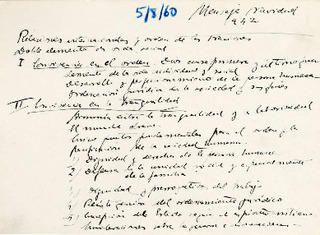 5/8/60
Mensaje Navidad
1942
Relaciones internacionales y orden de las naciones
Doble elemento de vida social
I Convivencia en el orden: Dios causa primera y último fin
elemento de la vida individual y social
Desarrollo y perfeccionamiento de la persona humana
Ordenación jurídica de la sociedad y sus fines
II Convivencia en la tranquilidad
Armonía entre la tranquilidad y la laboriosidad
El mundo obrero
Cinco puntos fundamentales para el orden y la
pacificación de la sociedad humana
1) Dignidad y derechos de la persona humana
2) Defensa de la unidad social y especialmente
de la familia
3) Dignidad y prerrogativas del trabajo
4) Reintegración del ordenamiento jurídico
5) Concepción del Estado según el espíritu cristiano
Consideraciones sobre la guerra y